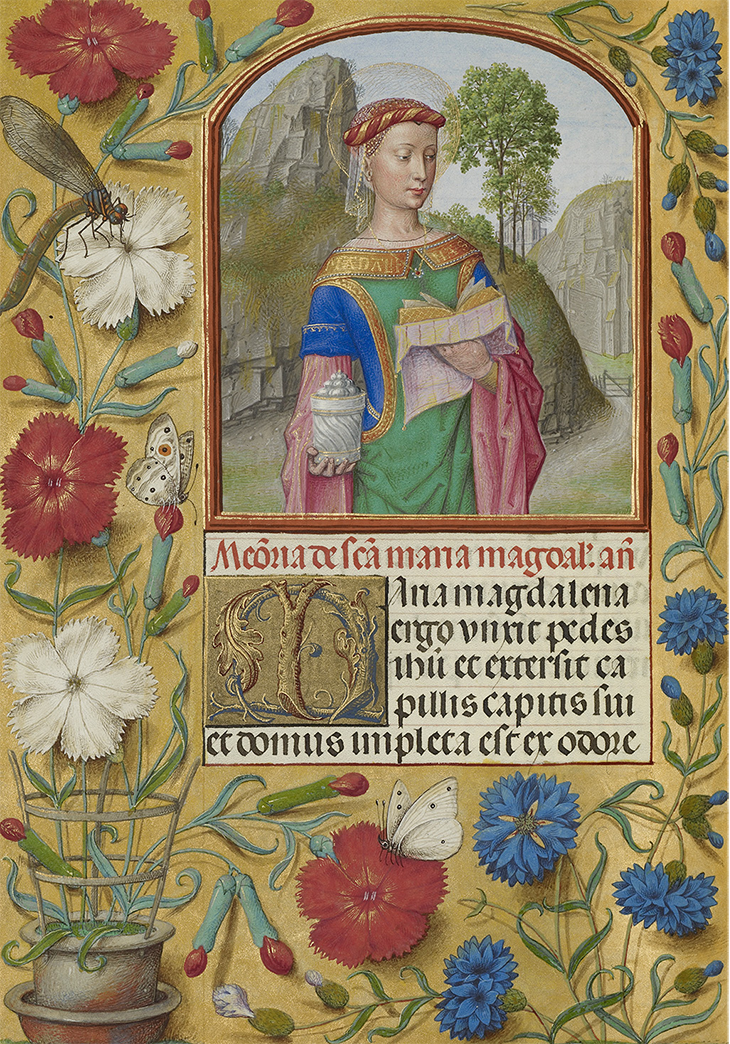 MADALEN
Meõria de scã maria magdal'. añ
Aria magdalena
ergo vnxit pedes
ihũ et extersit ca
pillis capitis sui
et domus impleta est ex odore